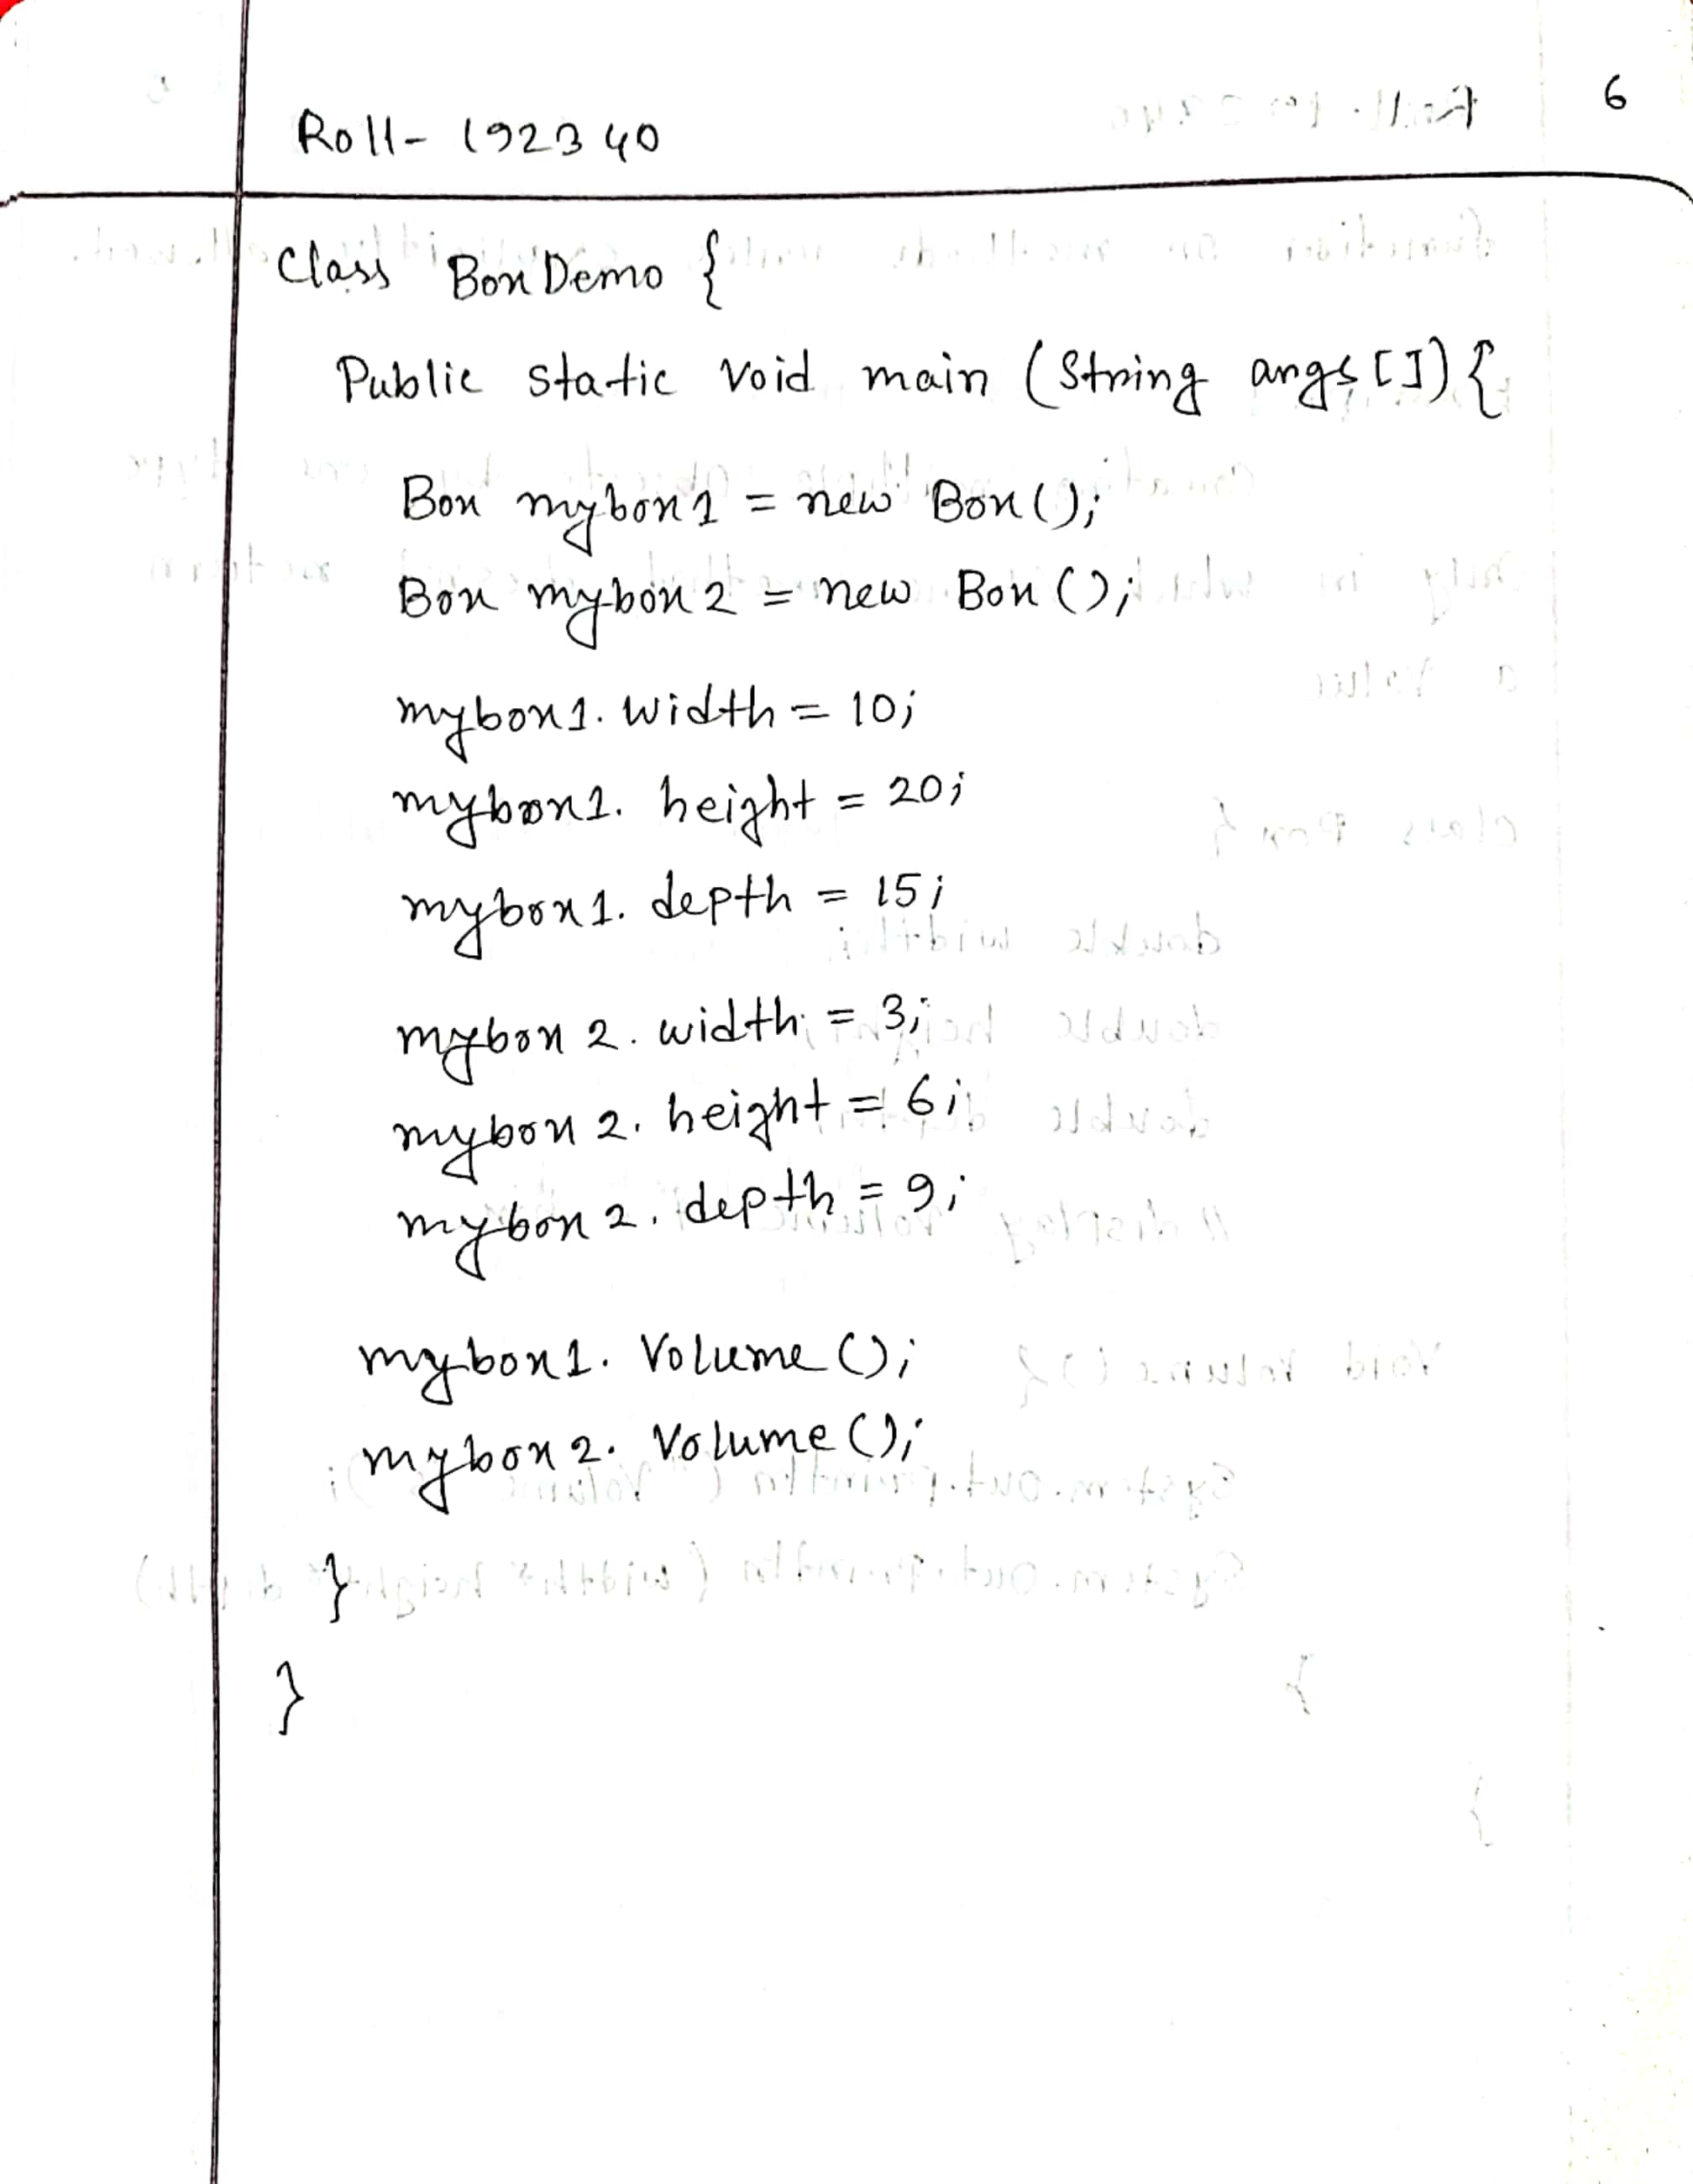 6
Roll- 192340
Class BoxDemo {
Public static void main (String args []) {
Box mybox1 = new Box();
Box mybox2 = new Box();
mybox1. width = 10;
mybox1. height = 20;
mybox1. depth = 15;
mybox2. width = 3;
mybox2. height = 6;
mybox2. depth = 9;
mybox1. Volume ();
mybox2. Volume ();
}
}